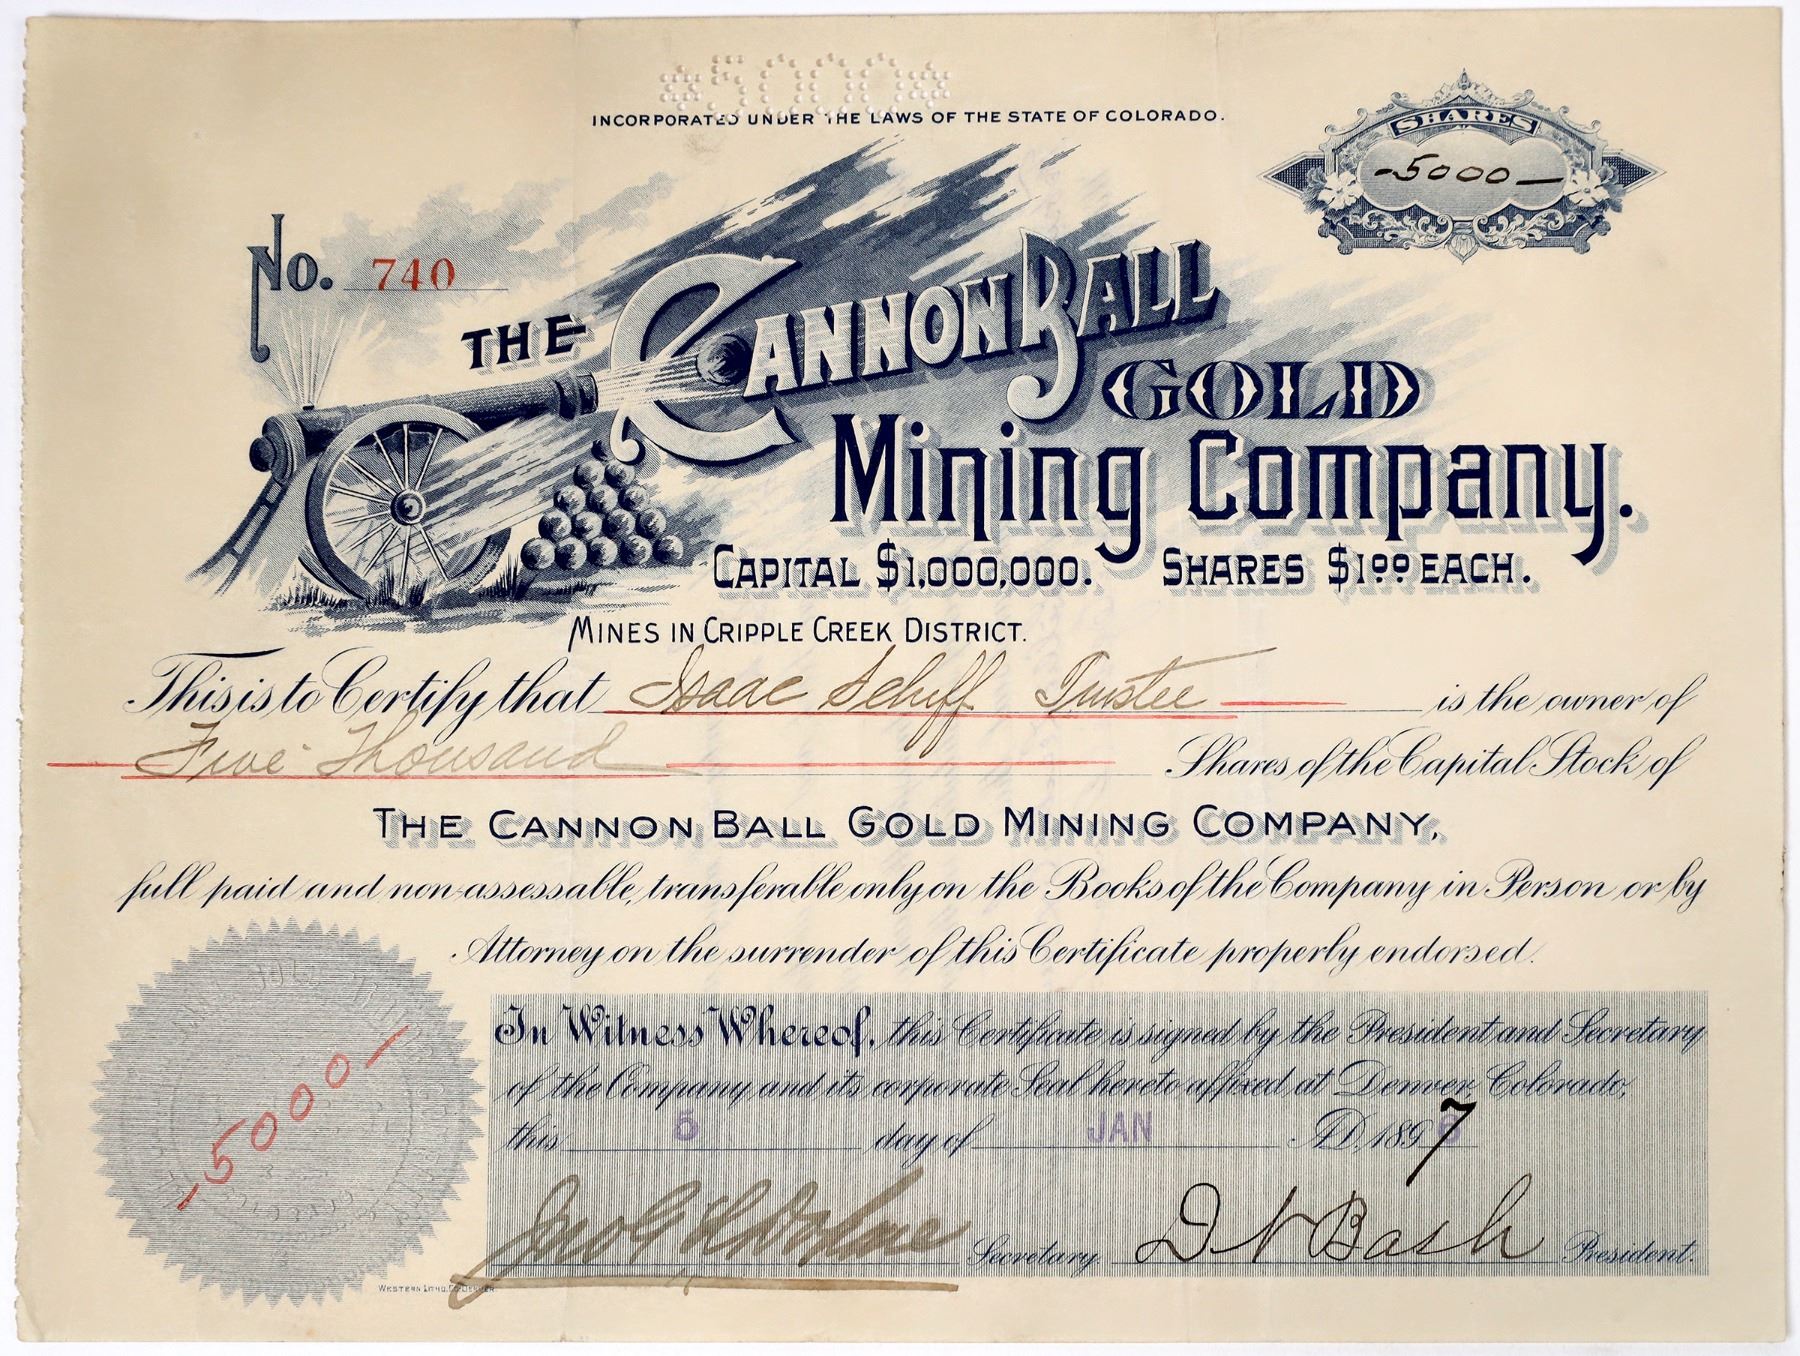 *5000*
INCORPORATED UNDER THE LAWS OF THE STATE OF COLORADO.
SHARES
-5000-
No. 740
THE CANNON BALL
GOLD
Mining Company.
CAPITAL $1,000,000. SHARES $1.00 EACH.
MINES IN CRIPPLE CREEK DISTRICT.
This is to Certify that Isaac Schiff Trustee is the owner of
Five Thousand Shares of the Capital Stock of
THE CANNON BALL GOLD MINING COMPANY,
full paid and non-assessable, transferable only on the Books of the Company in Person or by
Attorney on the surrender of this Certificate properly endorsed.
-5000-
In Witness Whereof, this Certificate is signed by the President and Secretary
of the Company and its corporate Seal hereto affixed at Denver, Colorado,
this 5 day of JAN A.D. 1897
Jno Secretary. D N Bash President.
WESTERN LITHO. CO. DENVER